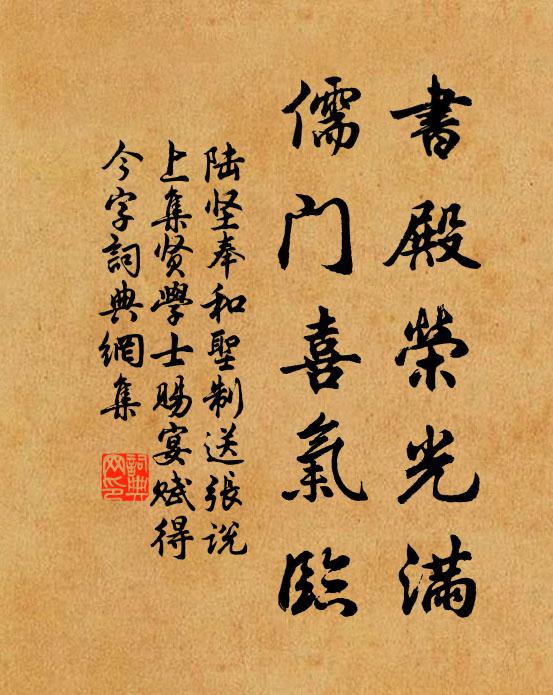 書殿榮光滿
儒門喜氣臨
陆坚奉和聖制送张说
上集贤學士赐宴赋得
今字詞典網集
詞典
网印